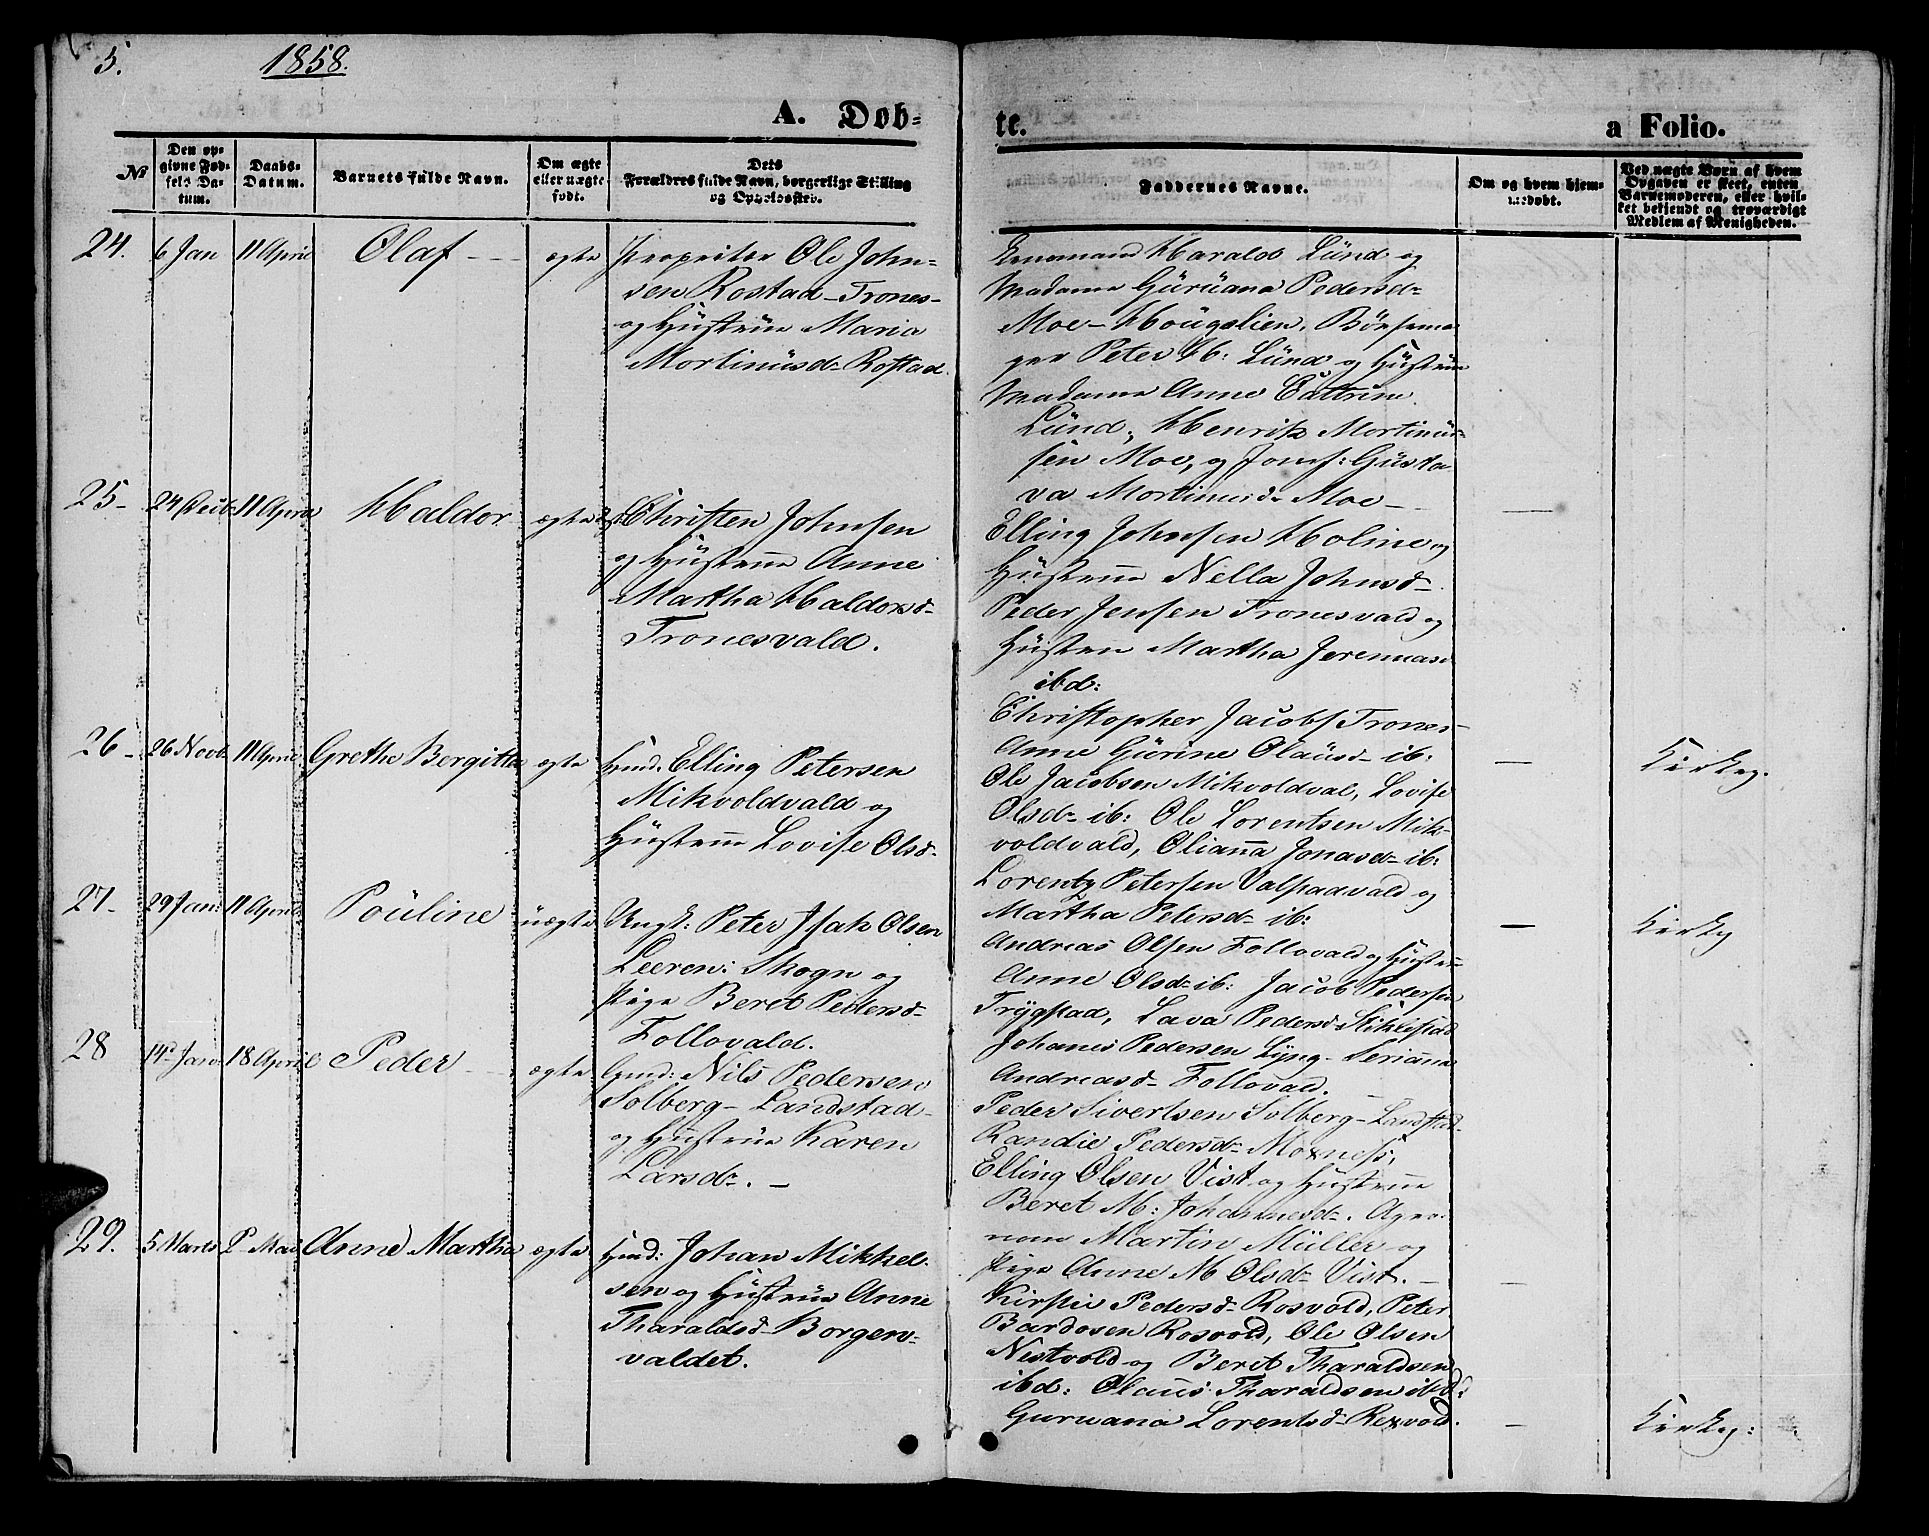 5.
1858.
A. Døb=
te.
a Folio.
No
Den op=
givne Fød=
sels Da=
tum.
Daabs=
Datum.
Barnets fulde Navn.
Om ægte
eller uægte
født.
Dets
Forældres fulde Navn, borgerlige Stilling
og Opholdssted.
Faddernes Navne.
Om og hvem hjem=
medøbt.
Ved uægte Børn af hvem
Opgaven er skeet, enten
Barnemoderen, eller hvil=
ket bekjendt og troværdigt
Medlem af Menigheden.
24.
6 Jan
11 April
Olaf
ægte
Propritær Ole John=
sen Rostad-Trones-
og Hustrüe Maria
Mortinüsd- Rostad.
Haralds Lünd og
Madame Güruana Pedersd-
Moe-Hougslien,
Peter Lünd og Hüstrüe
Madame Anne Cattrine
Lünd, Henrik Mortinüs=
sen Moe, og Gusta
va Mortinusd- Moe-
25-
24
11 April
Haldor
ægte
Christen Johnsen
og Hüstrue Anne
Martha Haldorsd-
Tronesvald.
Elling Johnsen Holme og
Hüstrue Nella Johnsd-
Peder Jensen Tronesvald og
Hüstrue Martha Jeremiasd
ibd:
26-
26 Novb
11 April
Grethe Bergitta
ægte
Hmd. Elling Petersen
Mikvoldvald og
Hüstrue Lovise Olsd-
Christopher Jacobs Trones-
Anne Gürine Olaüsd- ib:
Ole Jacobsen Mikvoldval, Lovise
Olsd- ib: Ole Lorentsen Mik-
voldvald, Olianna Jonasd- ib:
Kirkeg.
27-
29 Jan:
11 April
Poüline
üægte
Ungk: Peter Isak Olsen
Leeren: Skogn og
Pige Beret Pedersd-
Follovald.
Lorentz Petersen Valstadvald og
Martha Petersd- ib:
Andreas Olsen Follovald og Hüstrue
Anne Olsd- ib: Jacob Pedersen
Trygstad, Lava Pedersd- Stiklestad
Johanes Pedersen Lyng- Serianna
Andreasd- Follovald.
Kirkeg
28
14d Jan
18 April
Peder
ægte
Gmd: Nils Pedersen
Solberg- Landstad-
og Hustrüe Karen
Larsd-. -
Peder Sivertsen Solberg-Landstad-
Randie Pedersd- Moxness,
Elling Olsen Vist og Hustrue
Beret M: Johannesd-. Agro=
nom Martin Müller og
Pige Anne M Olsd- Vist. -
29.
5 Marts
2 Mai
Anne Martha
ægte
Hmd: Johan Mikkel=
sen og Hüstrüe Anne
Tharaldsd- Borgen=
valdet.
Kirstie Pedersd- Rosvold, Peter
Bardosen Rosvold, Ole Olsen
Nestvold og Beret Tharaldsen
ibd: Olaüs Tharaldsen ibd:
Guruana Lorentsd- Rexvold.
Kirkeg: